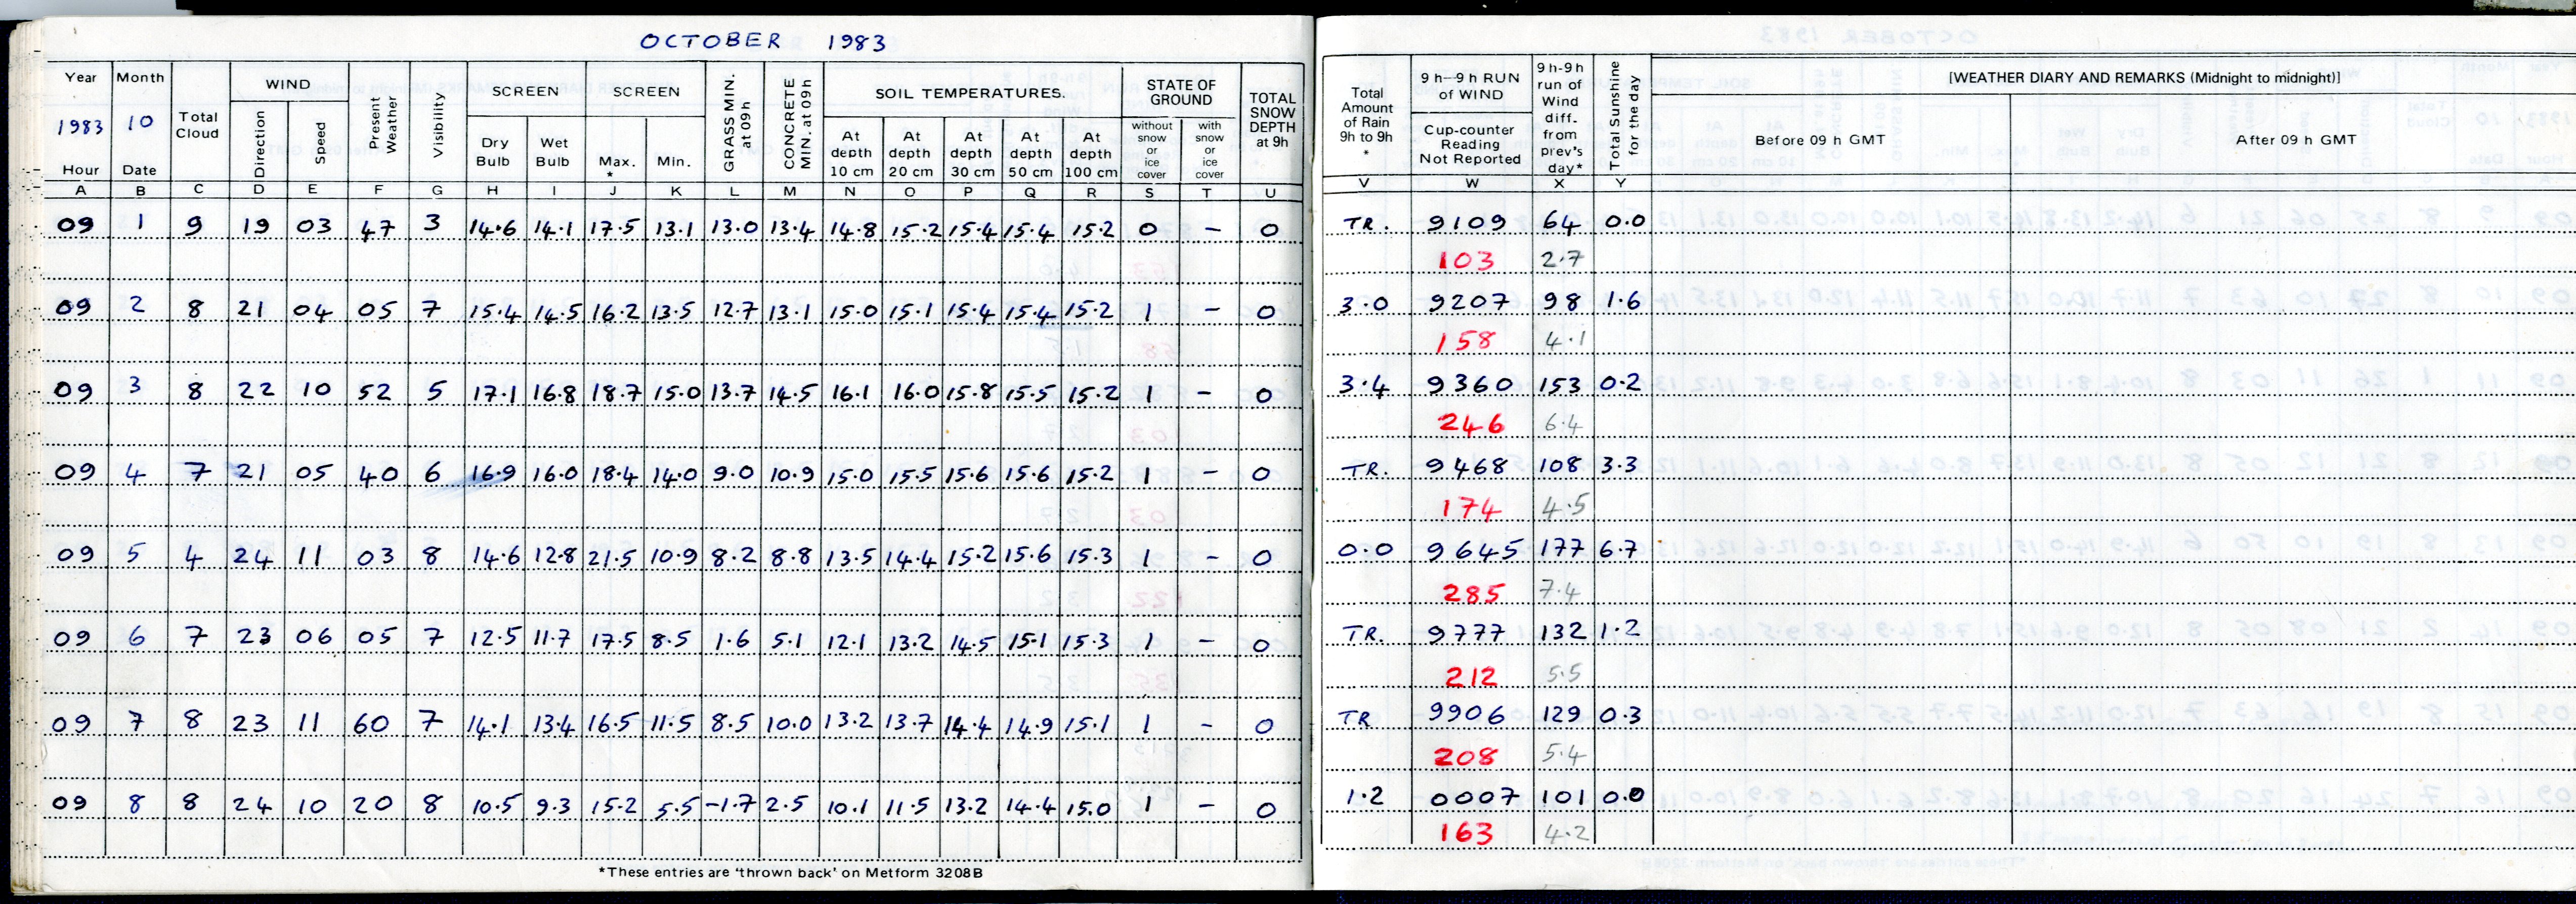 OCTOBER 1983
Year Month Total Cloud WIND Present Weather Visibility SCREEN SCREEN GRASS MIN. at 09h CONCRETE MIN. at 09h SOIL TEMPERATURES. STATE OF GROUND TOTAL SNOW DEPTH at 9h Total Amount of Rain 9h to 9h * 9 h–9 h RUN of WIND 9h-9h run of Wind diff. from prev's day* Total Sunshine for the day [WEATHER DIARY AND REMARKS (Midnight to midnight)]
1983 10 Direction Speed Dry Bulb Wet Bulb Max. * Min. At depth 10 cm At depth 20 cm At depth 30 cm At depth 50 cm At depth 100 cm without snow or ice cover with snow or ice cover Cup-counter Reading Not Reported Before 09 h GMT After 09 h GMT
Hour Date
A B C D E F G H I J K L M N O P Q R S T U V W X Y
09 1 9 19 03 47 3 14.6 14.1 17.5 13.1 13.0 13.4 14.8 15.2 15.4 15.4 15.2 0 – 0 TR. 9109 64 0.0
103 2.7
09 2 8 21 04 05 7 15.4 14.5 16.2 13.5 12.7 13.1 15.0 15.1 15.4 15.4 15.2 1 – 0 3.0 9207 98 1.6
158 4.1
09 3 8 22 10 52 5 17.1 16.8 18.7 15.0 13.7 14.5 16.1 16.0 15.8 15.5 15.2 1 – 0 3.4 9360 153 0.2
246 6.4
09 4 7 21 05 40 6 16.9 16.0 18.4 14.0 9.0 10.9 15.0 15.5 15.6 15.6 15.2 1 – 0 TR. 9468 108 3.3
174 4.5
09 5 4 24 11 03 8 14.6 12.8 21.5 10.9 8.2 8.8 13.5 14.4 15.2 15.6 15.3 1 – 0 0.0 9645 177 6.7
285 7.4
09 6 7 23 06 05 7 12.5 11.7 17.5 8.5 1.6 5.1 12.1 13.2 14.5 15.1 15.3 1 – 0 TR. 9777 132 1.2
212 5.5
09 7 8 23 11 60 7 14.1 13.4 16.5 11.5 8.5 10.0 13.2 13.7 14.4 14.9 15.1 1 – 0 TR 9906 129 0.3
208 5.4
09 8 8 24 10 20 8 10.5 9.3 15.2 5.5 -1.7 2.5 10.1 11.5 13.2 14.4 15.0 1 – 0 1.2 0007 101 0.0
163 4.2
*These entries are 'thrown back' on Metform 3208B